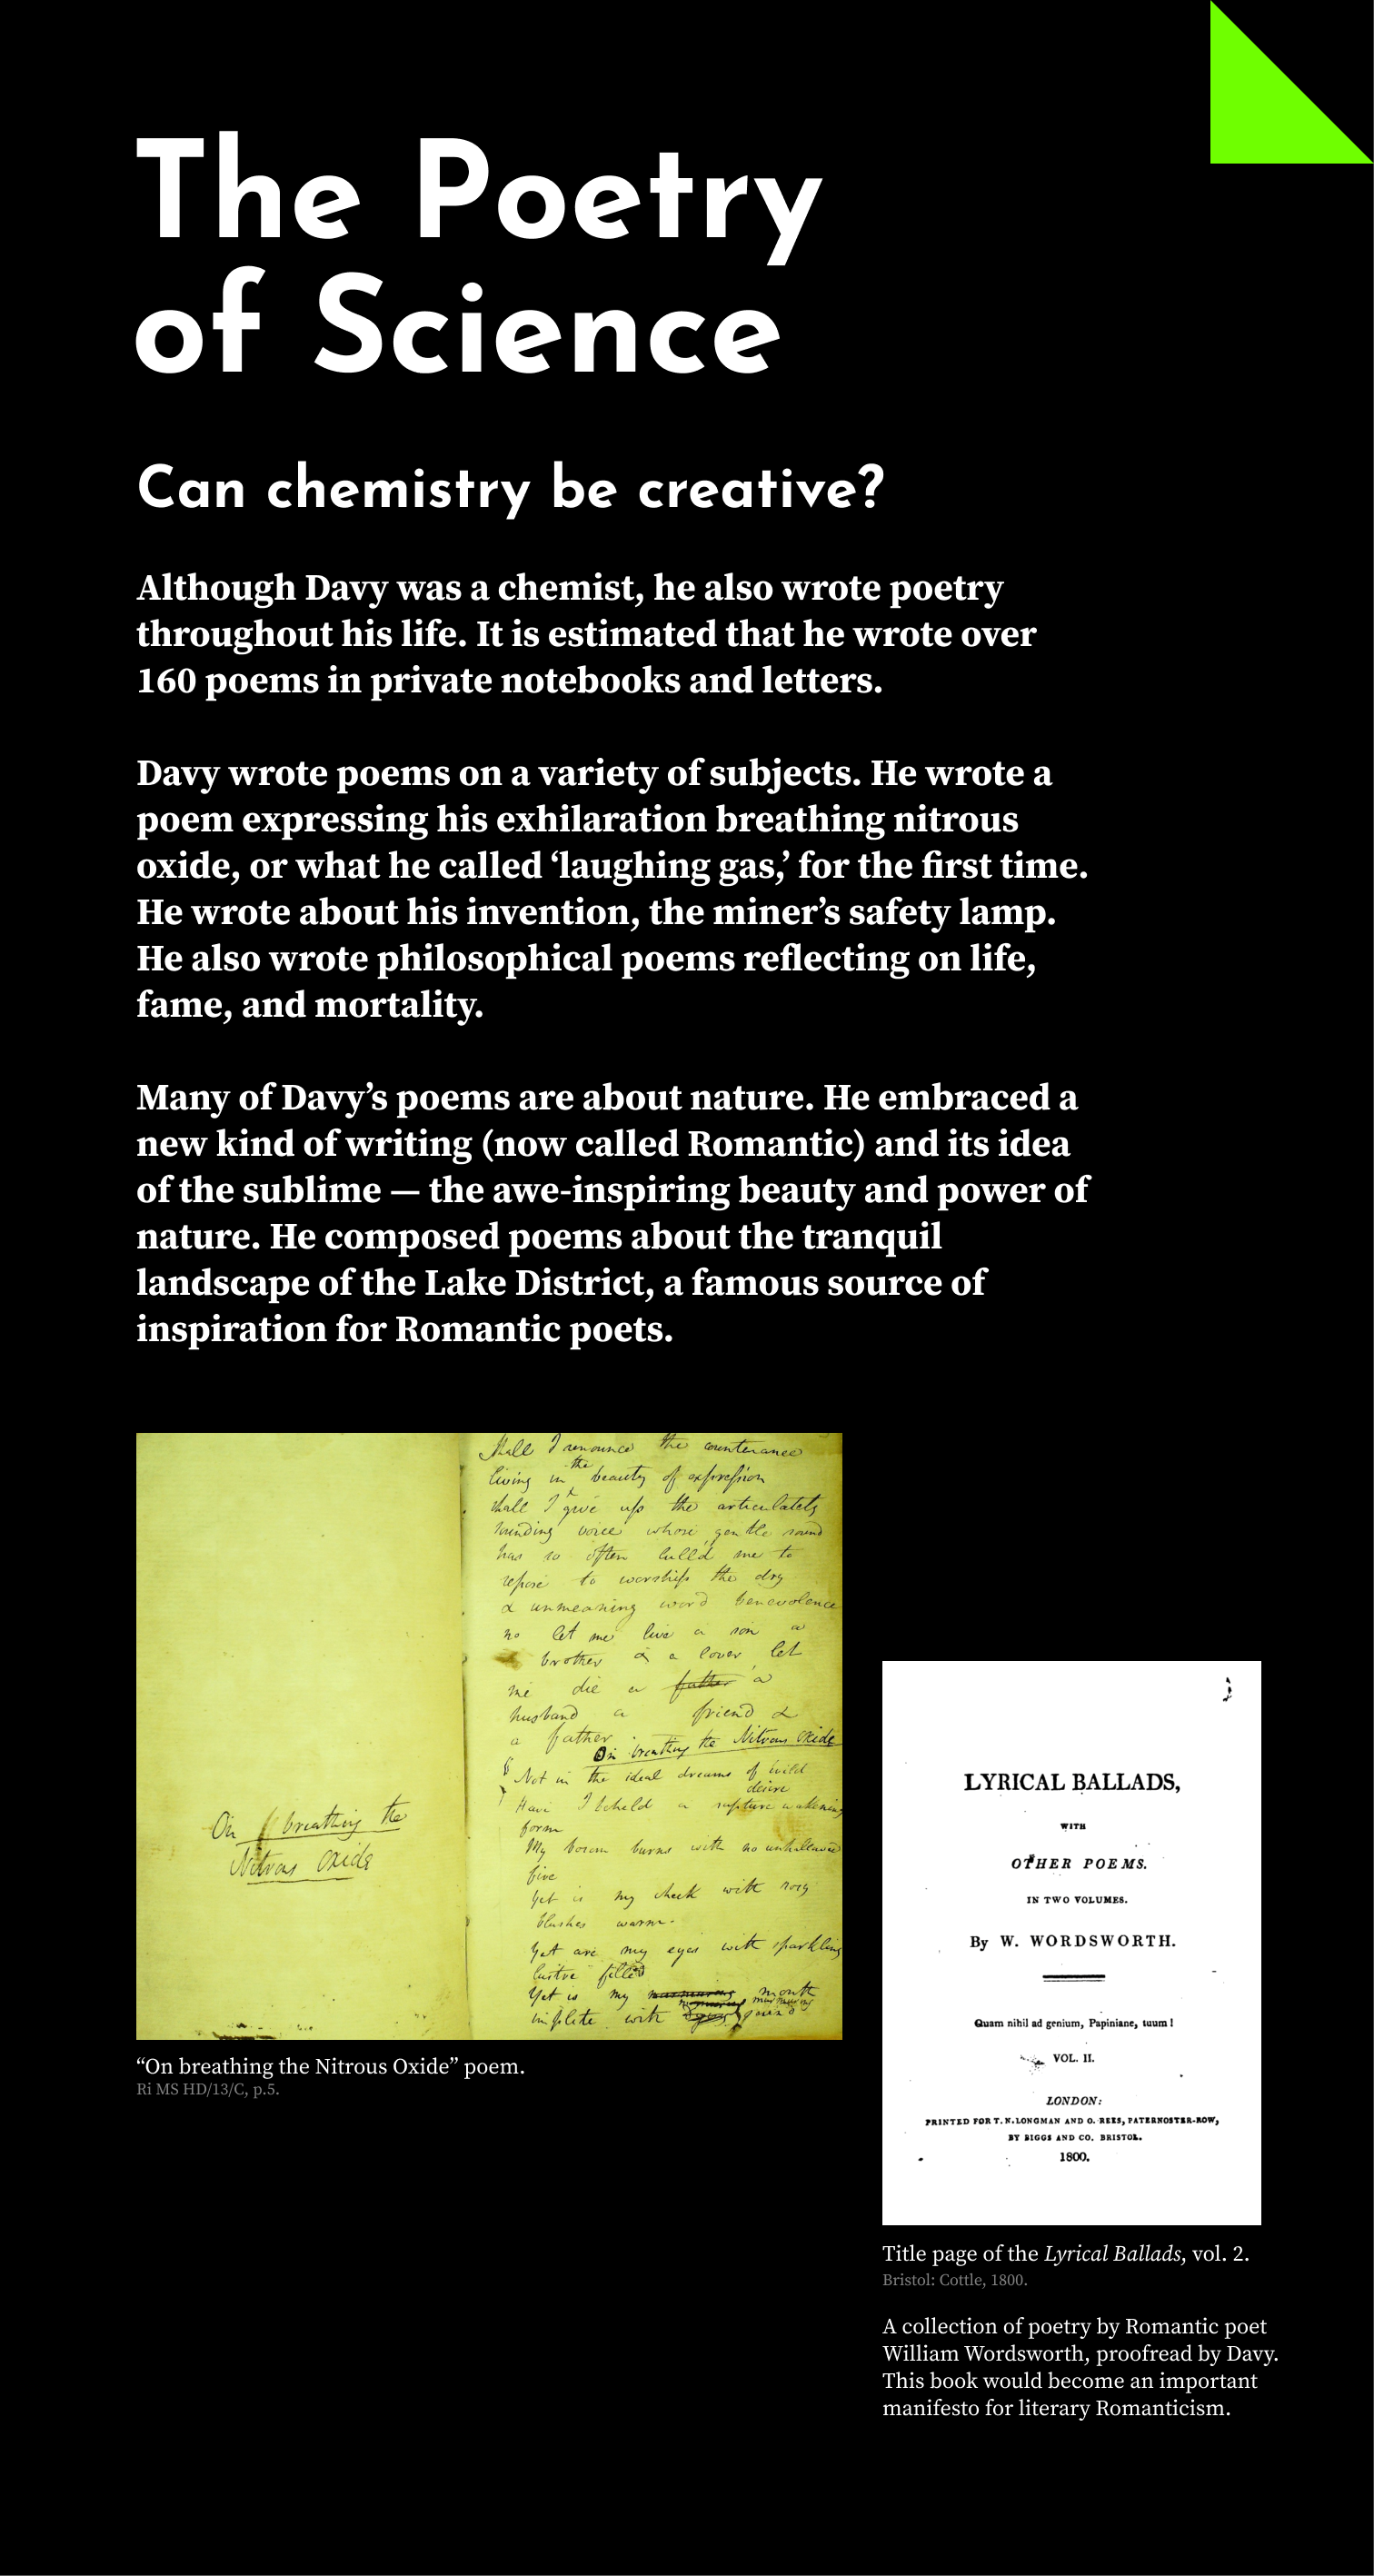 The Poetry
of Science
Can chemistry be creative?
Although Davy was a chemist, he also wrote poetry
throughout his life. It is estimated that he wrote over
160 poems in private notebooks and letters.
Davy wrote poems on a variety of subjects. He wrote a
poem expressing his exhilaration breathing nitrous
oxide, or what he called ‘laughing gas,’ for the first time.
He wrote about his invention, the miner’s safety lamp.
He also wrote philosophical poems reflecting on life,
fame, and mortality.
Many of Davy’s poems are about nature. He embraced a
new kind of writing (now called Romantic) and its idea
of the sublime — the awe-inspiring beauty and power of
nature. He composed poems about the tranquil
landscape of the Lake District, a famous source of
inspiration for Romantic poets.
On breathing the
Nitrous Oxide
Shall I renounce the countenance
living in the beauty of expression
shall I give up the articulately
sounding voice whose gentle sound
has so often lulld me to
repose to worship the dry
& unmeaning word benevolence
no let me live a son a
brother & a lover let
me die a father a
husband a friend &
a father
On breathing the Nitrous Oxide
Not in the ideal dreams of wild
desire
Have I beheld a rapture wakening
form
My bosom burns with no unhallowed
fire
Yet is my cheek with rosy
blushes warm.
Yet are my eyes with sparkling
lustre filled
Yet is my mouth
implete with murmuring sound
“On breathing the Nitrous Oxide” poem.
Ri MS HD/13/C, p.5.
LYRICAL BALLADS,
WITH
OTHER POEMS.
IN TWO VOLUMES.
By W. WORDSWORTH.
Quam nihil ad genium, Papiniane, tuum!
VOL. II.
LONDON:
PRINTED FOR T. N. LONGMAN AND O. REES, PATERNOSTER-ROW,
BY BIGGS AND CO. BRISTOL.
1800.
Title page of the Lyrical Ballads, vol. 2.
Bristol: Cottle, 1800.
A collection of poetry by Romantic poet
William Wordsworth, proofread by Davy.
This book would become an important
manifesto for literary Romanticism.